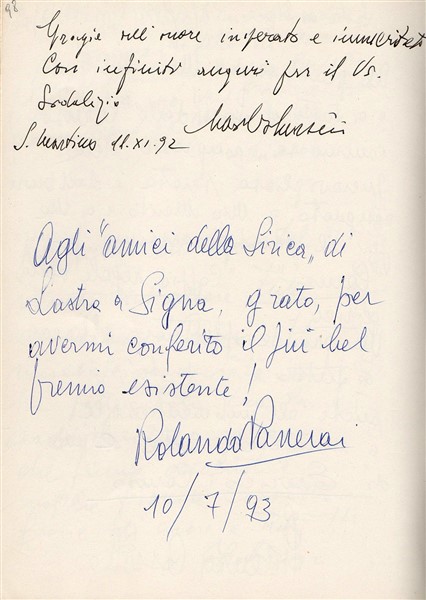 98
Grazie dell'onore insperato e immeritato
Con infiniti auguri per il Vs.
Sodalizio
S. Martino 11.XI.92
Agli "amici della Lirica„ di
Lastra a Signa, grato, per
avermi conferito il più bel
premio esistente!
Rolando Panerai
10/7/93